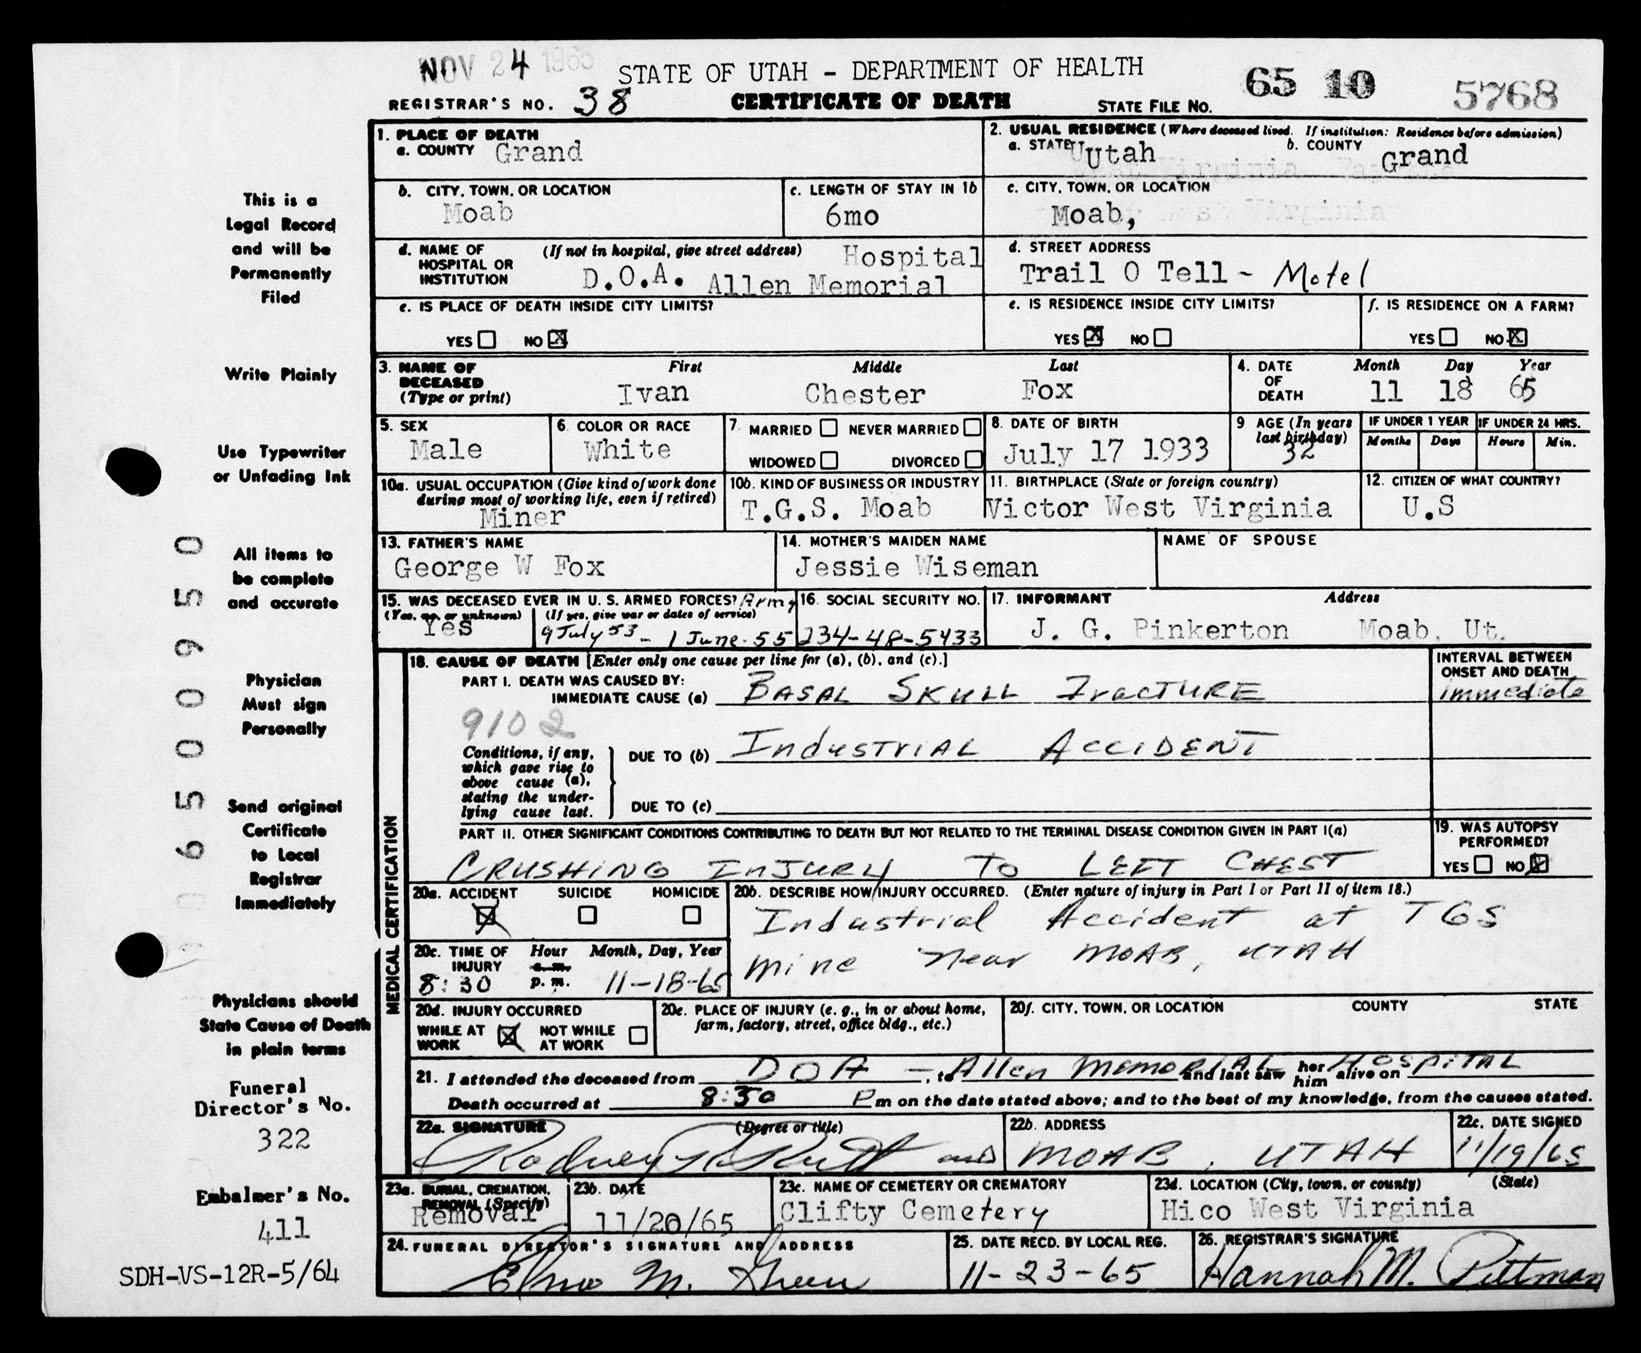 NOV 24 1965
STATE OF UTAH - DEPARTMENT OF HEALTH
65 10 5768
REGISTRAR'S NO. 38
CERTIFICATE OF DEATH
STATE FILE NO.
This is a
Legal Record
and will be
Permanently
Filed
Write Plainly
Use Typewriter
or Unfading Ink
All items to
be complete
and accurate
Physician
Must sign
Personally
Send original
Certificate
to Local
Registrar
Immediately
Physicians should
State Cause of Death
in plain terms
Funeral
Director's No.
322
Embalmer's No.
411
SDH-VS-12R-5/64
650009 50
1. PLACE OF DEATH
a. COUNTY Grand
2. USUAL RESIDENCE (Where deceased lived. If institution: Residence before admission)
a. STATE Utah b. COUNTY Grand
b. CITY, TOWN, OR LOCATION
Moab
c. LENGTH OF STAY IN 1b
6mo
c. CITY, TOWN, OR LOCATION
Moab,
d. NAME OF HOSPITAL OR INSTITUTION (If not in hospital, give street address)
D.O.A. Allen Memorial Hospital
d. STREET ADDRESS
Trail O Tell - Motel
e. IS PLACE OF DEATH INSIDE CITY LIMITS?
YES NO X
e. IS RESIDENCE INSIDE CITY LIMITS?
YES X NO
f. IS RESIDENCE ON A FARM?
YES NO X
3. NAME OF DECEASED (Type or print)
First Middle Last
Ivan Chester Fox
4. DATE OF DEATH
Month Day Year
11 18 65
5. SEX
Male
6. COLOR OR RACE
White
7. MARRIED NEVER MARRIED
WIDOWED DIVORCED
8. DATE OF BIRTH
July 17 1933
9 AGE (In years last birthday)
32
IF UNDER 1 YEAR
Months Days
IF UNDER 24 HRS.
Hours Min.
10a. USUAL OCCUPATION (Give kind of work done during most of working life, even if retired)
Miner
10b. KIND OF BUSINESS OR INDUSTRY
T.G.S. Moab
11. BIRTHPLACE (State or foreign country)
Victor West Virginia
12. CITIZEN OF WHAT COUNTRY?
U.S
13. FATHER'S NAME
George W Fox
14. MOTHER'S MAIDEN NAME
Jessie Wiseman
NAME OF SPOUSE
15. WAS DECEASED EVER IN U. S. ARMED FORCES? Army
(Yes, no, or unknown) (If yes, give war or dates of service)
Yes 9 July 53 - 1 June 55
16. SOCIAL SECURITY NO.
234-48-5433
17. INFORMANT Address
J. G. Pinkerton Moab, Ut.
MEDICAL CERTIFICATION
18. CAUSE OF DEATH [Enter only one cause per line for (a), (b), and (c).]
INTERVAL BETWEEN ONSET AND DEATH
PART I. DEATH WAS CAUSED BY:
IMMEDIATE CAUSE (a) BASAL SKULL FRACTURE immediate
9102
Conditions, if any, which gave rise to above cause (a), stating the underlying cause last.
DUE TO (b) INDUSTRIAL ACCIDENT
DUE TO (c)
PART II. OTHER SIGNIFICANT CONDITIONS CONTRIBUTING TO DEATH BUT NOT RELATED TO THE TERMINAL DISEASE CONDITION GIVEN IN PART I(a)
CRUSHING INJURY TO LEFT CHEST
19. WAS AUTOPSY PERFORMED?
YES NO X
20a. ACCIDENT SUICIDE HOMICIDE
X
20b. DESCRIBE HOW INJURY OCCURRED. (Enter nature of injury in Part I or Part II of item 18.)
Industrial Accident at TGS
mine near MOAB, UTAH
20c. TIME OF INJURY Hour a.m. p.m. Month, Day, Year
8:30 11-18-65
20d. INJURY OCCURRED
WHILE AT WORK X NOT WHILE AT WORK
20e. PLACE OF INJURY (e. g., in or about home, farm, factory, street, office bldg., etc.)
20f. CITY, TOWN, OR LOCATION COUNTY STATE
21. I attended the deceased from DOA -, to Allen MEMORIAL and last saw her him alive on HOSPITAL
Death occurred at 8:30 P m on the date stated above; and to the best of my knowledge, from the causes stated.
22a. SIGNATURE (Degree or title)
22b. ADDRESS
MOAB, UTAH
22c. DATE SIGNED
11/19/65
23a. BURIAL, CREMATION, REMOVAL (Specify)
Removal
23b. DATE
11/20/65
23c. NAME OF CEMETERY OR CREMATORY
Clifty Cemetery
23d. LOCATION (City, town, or county) (State)
Hico West Virginia
24. FUNERAL DIRECTOR'S SIGNATURE AND ADDRESS
Elmo M.
25. DATE RECD. BY LOCAL REG.
11-23-65
26. REGISTRAR'S SIGNATURE
Hannah M. Pittman